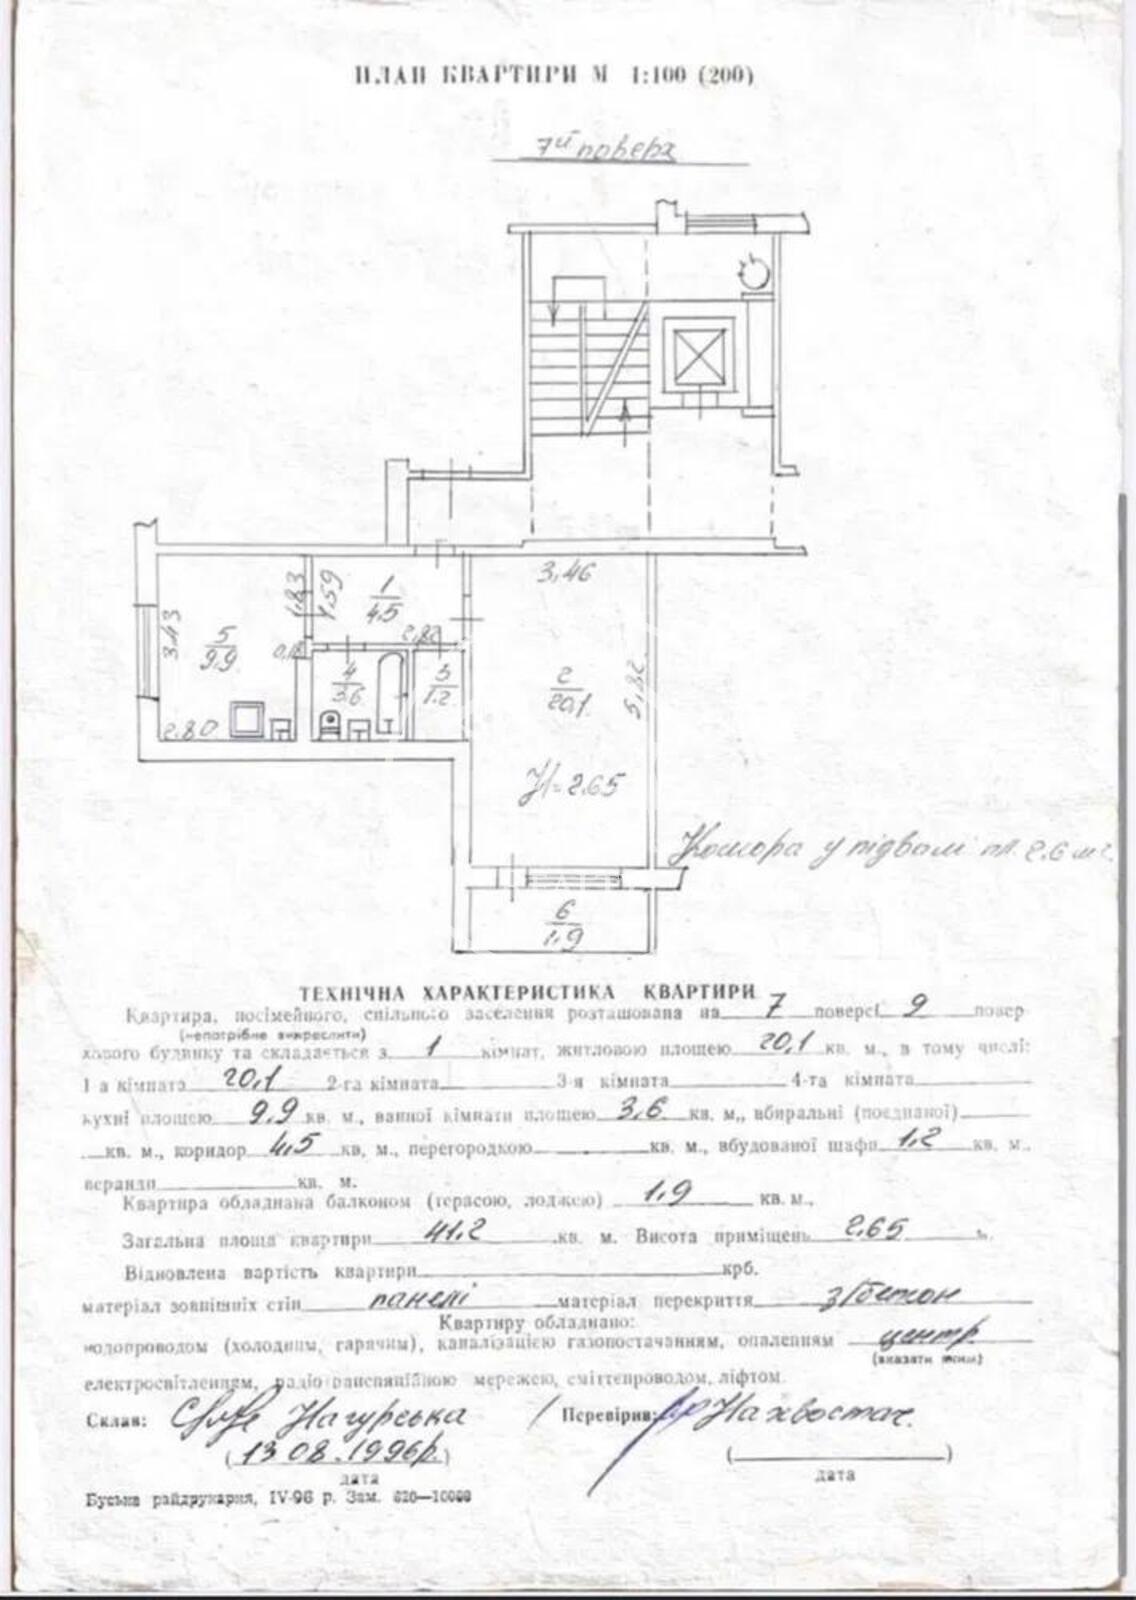 ПЛАН КВАРТИРИ М 1:100 (200)
7й поверх
3,46
1,83
1,59
1
4.5
3.43
5
9.9
2,82
4
3.6
3
1.2
2
20,1
5,82
2.80
H=2.65
Комора у підвалі пл. 2,6 м²
6
1.9
ТЕХНІЧНА ХАРАКТЕРИСТИКА КВАРТИРИ
Квартира, посімейного, спільного заселення розташована на 7 поверсі 9 повер
(непотрібне викреслити)
хового будинку та складається з 1 кімнат, житловою площею 20,1 кв. м., в тому числі:
1-а кімната 20,1 2-га кімната 3-я кімната 4-та кімната
кухні площею 9.9 кв. м., ванної кімнати площею 3,6 кв. м., вбиральні (поєднаної)
кв. м., коридор 4,5 кв. м., перегородкою кв. м., вбудованої шафи 1,2 кв. м.,
веранди кв. м.
Квартира обладнана балконом (терасою, лоджею) 1,9 кв м.,
Загальна площа квартири 41,2 кв. м. Висота приміщень 2,65 м.
Відновлена вартість квартири крб.
матеріал зовнішніх стін панелі матеріал перекриття з/бетон
Квартиру обладнано:
водопроводом (холодним, гарячим), каналізацією газопостачанням, опаленням центр.
(вказати яким)
електросвітленням, радіотрансляційною мережею, сміттєпроводом, ліфтом.
Склав: Нагурська / Перевірив: Нахвостач.
(13 08.1996р.) ( )
дата дата
Буська райдрукарня, IV-96 р. Зам. 620—10000